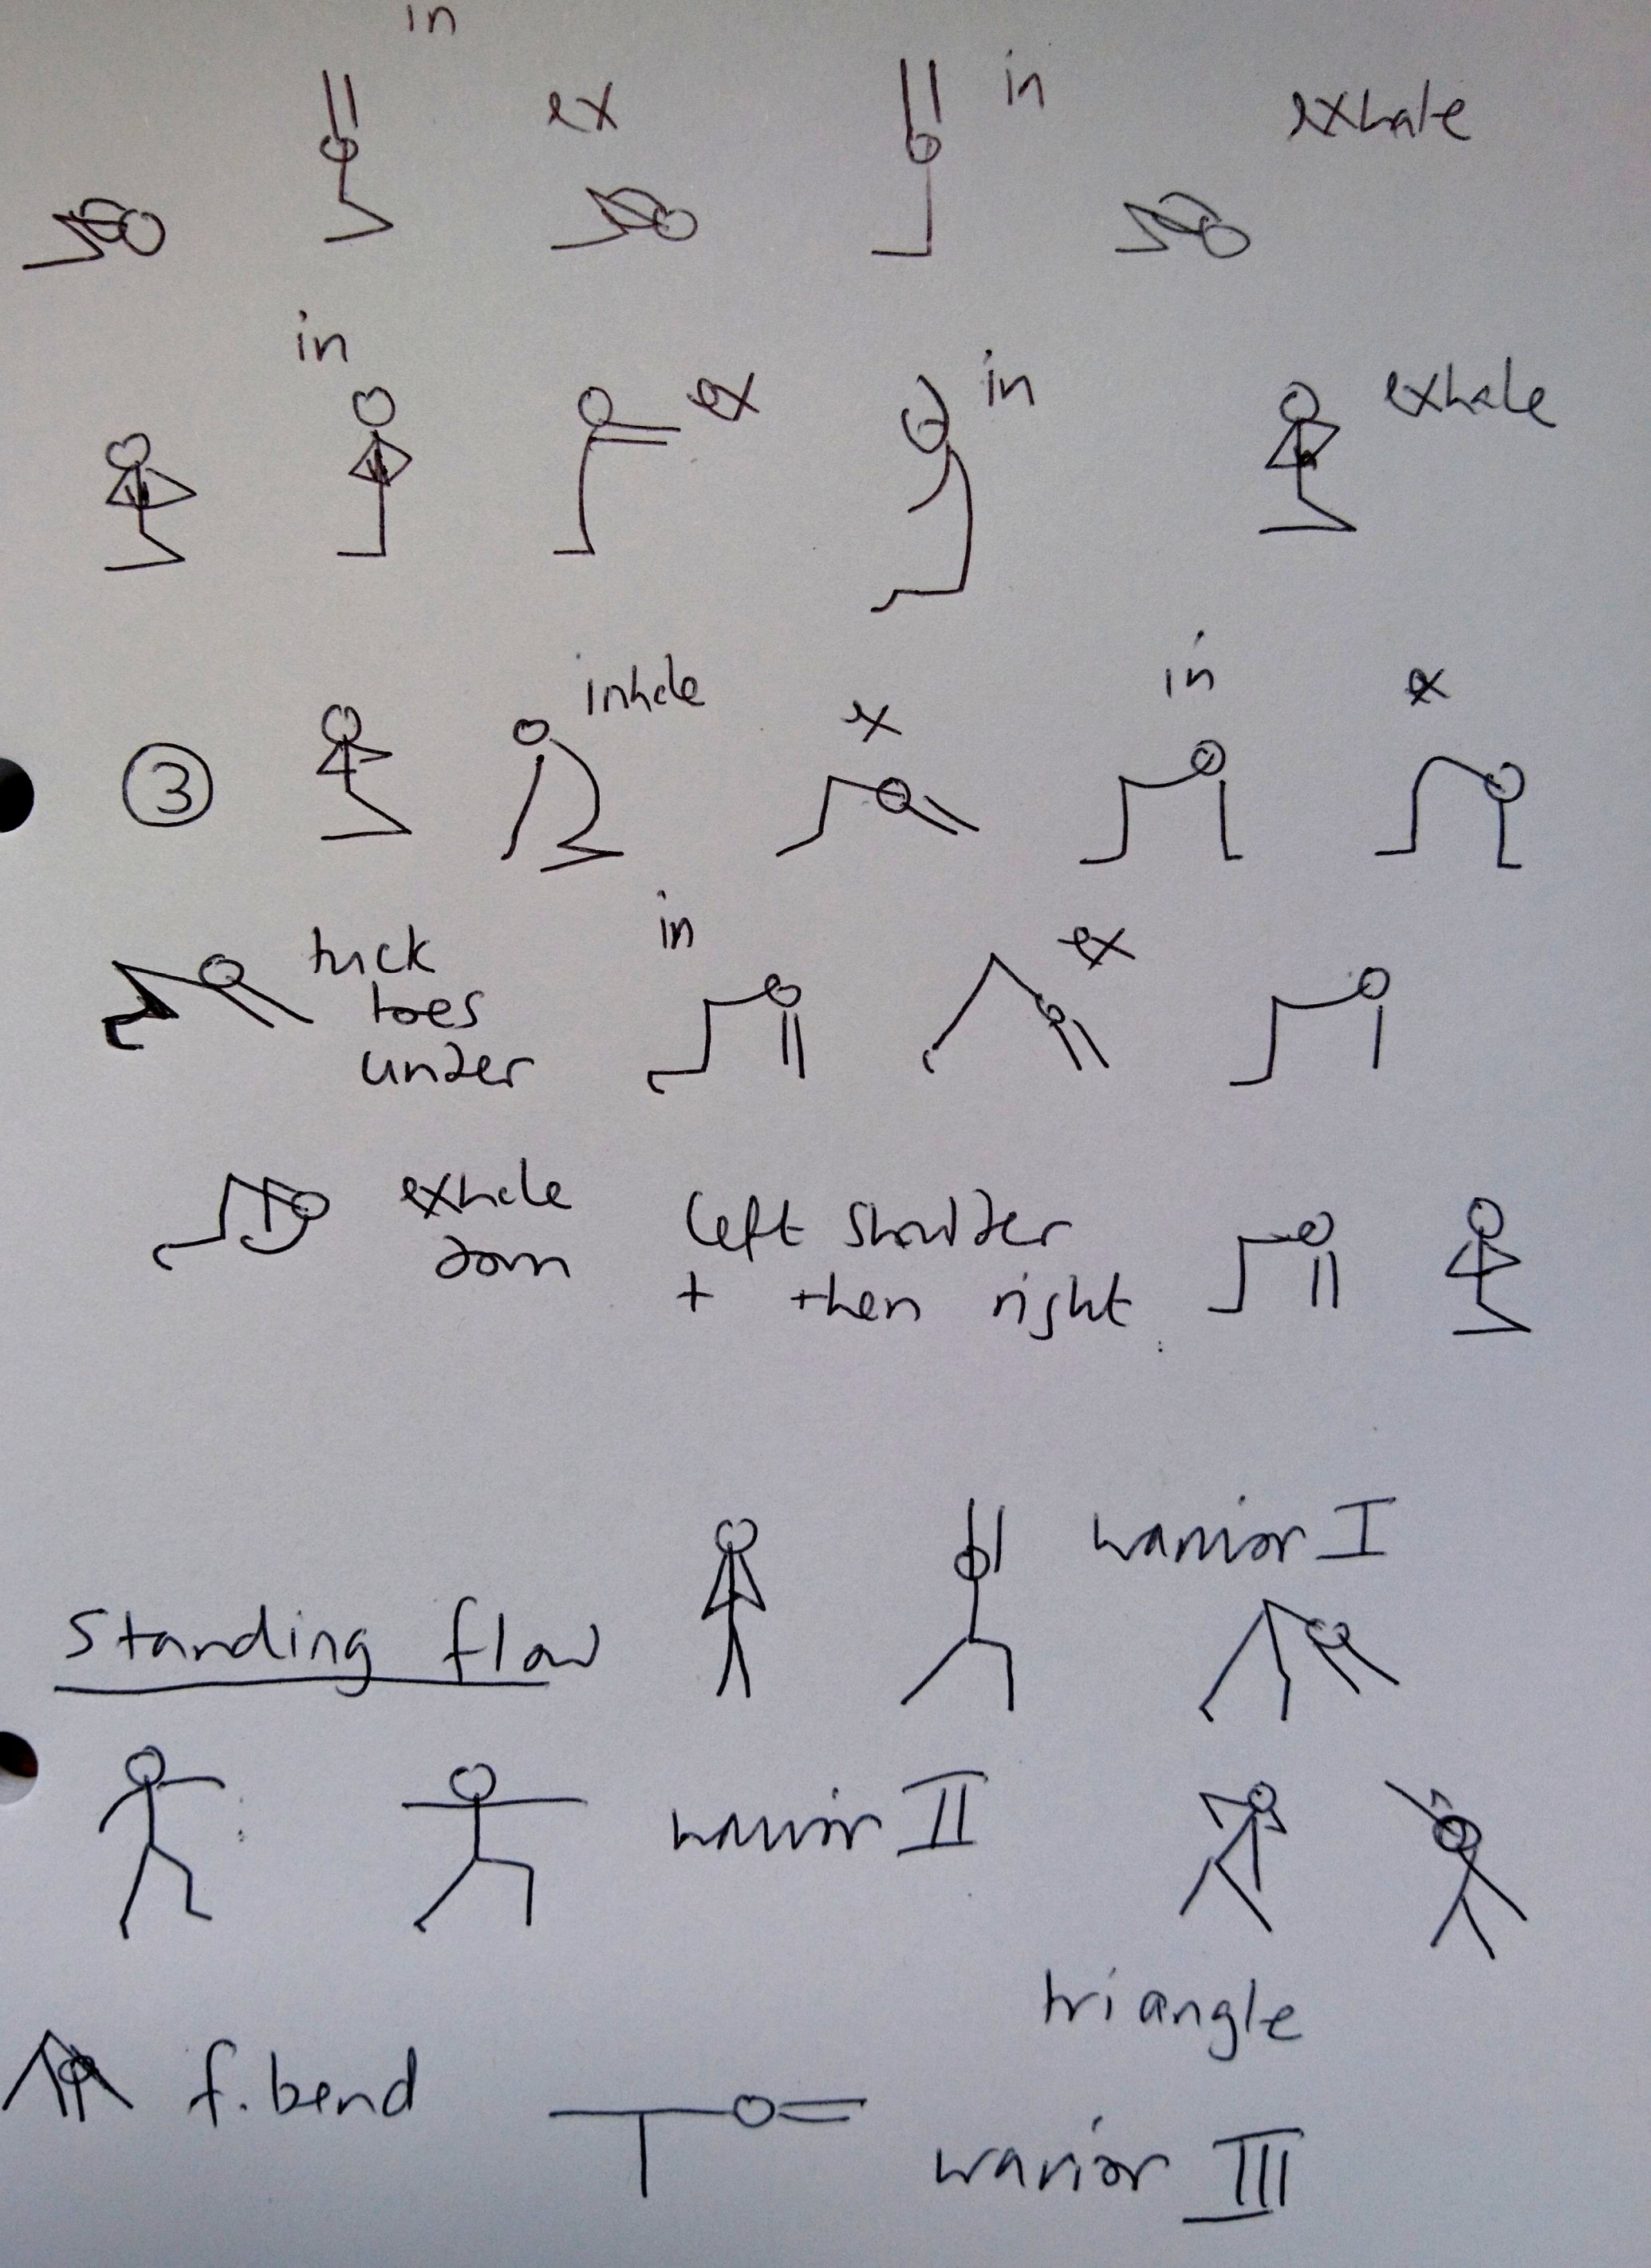 in
ex in exhale
in ex in exhale
③ inhale ex in ex
tuck in ex
toes
under
exhale left shoulder
down + then right
Standing flow warrior I
warrior II
triangle
f. bend warrior III